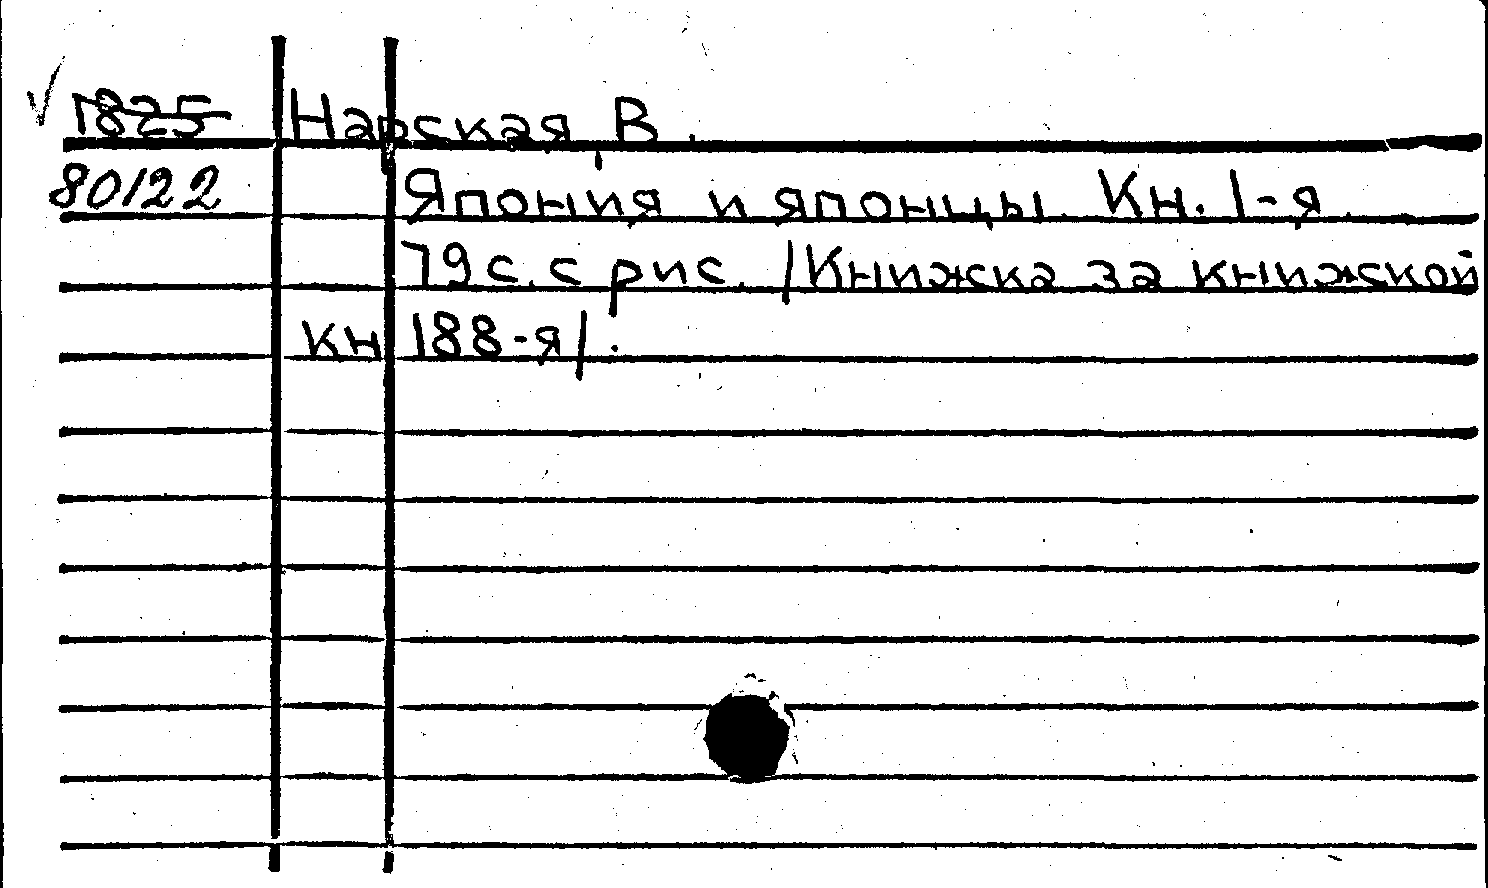 1825 Нарская, В.
80122 Япония и японцы. Кн. 1-я.
79 с. с рис. /Книжка за книжкой
кн 188-я/.